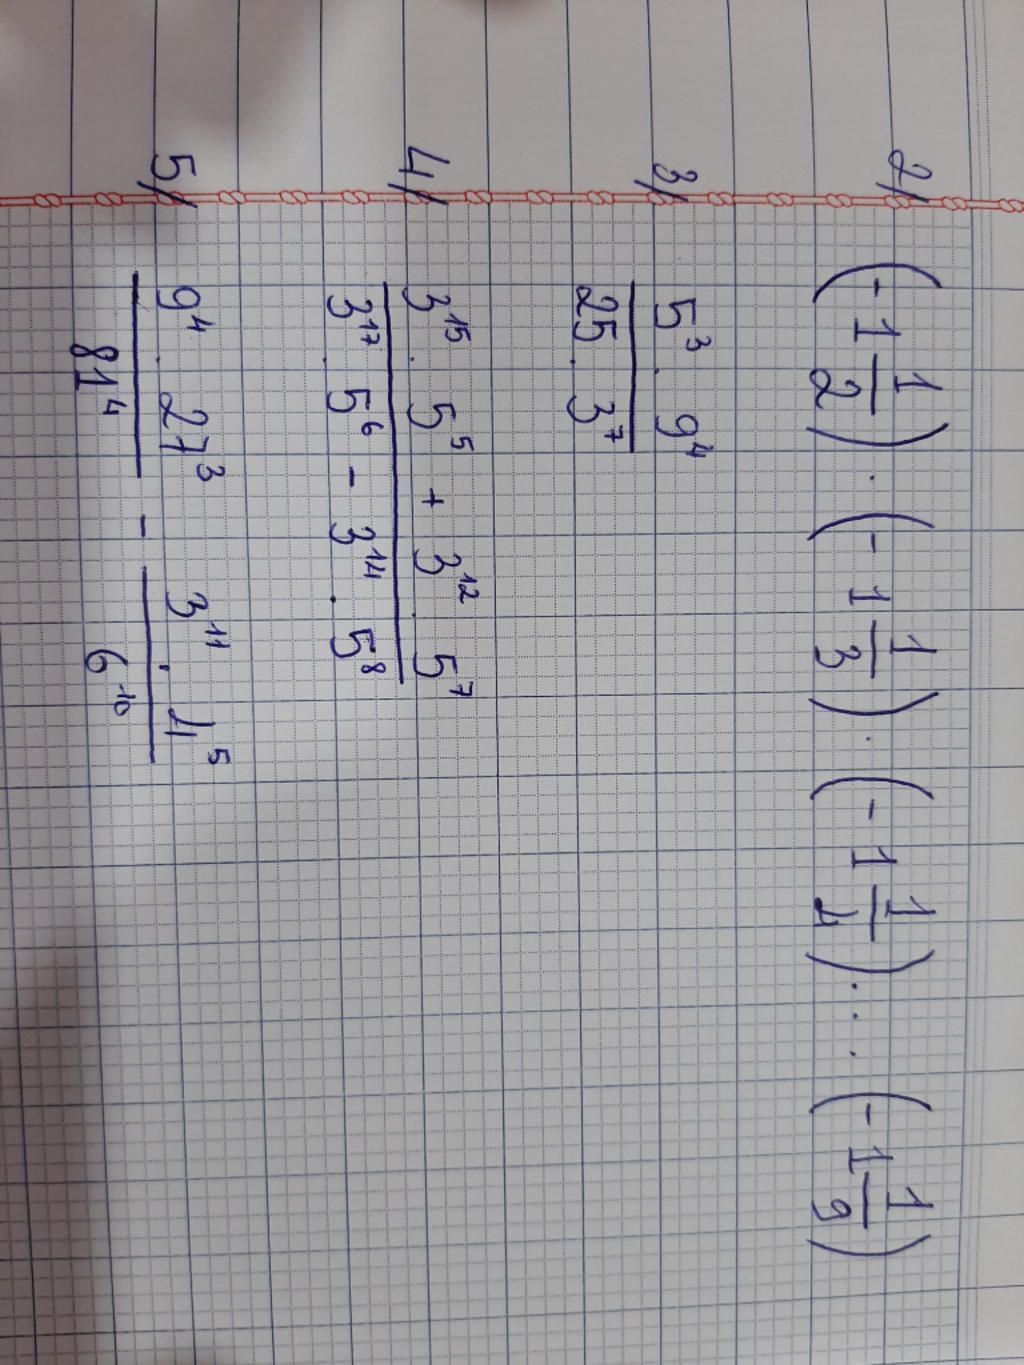 2/ (-1 1/2) . (-1 1/3) . (-1 1/4) ... (-1 1/9)
3/ 5³ . 9⁴
25 . 3⁷
4/ 3¹⁵ . 5⁵ + 3¹² . 5⁷
3¹⁷ . 5⁶ - 3¹⁴ . 5⁸
5/ 9⁴ . 27³ - 3¹¹ . 4⁵
81⁴ 6¹⁰